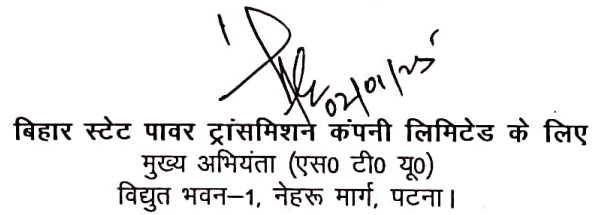 02/01/25
बिहार स्टेट पावर ट्रांसमिशन कंपनी लिमिटेड के लिए
मुख्य अभियंता (एस0 टी0 यू0)
विद्युत भवन–1, नेहरू मार्ग, पटना।